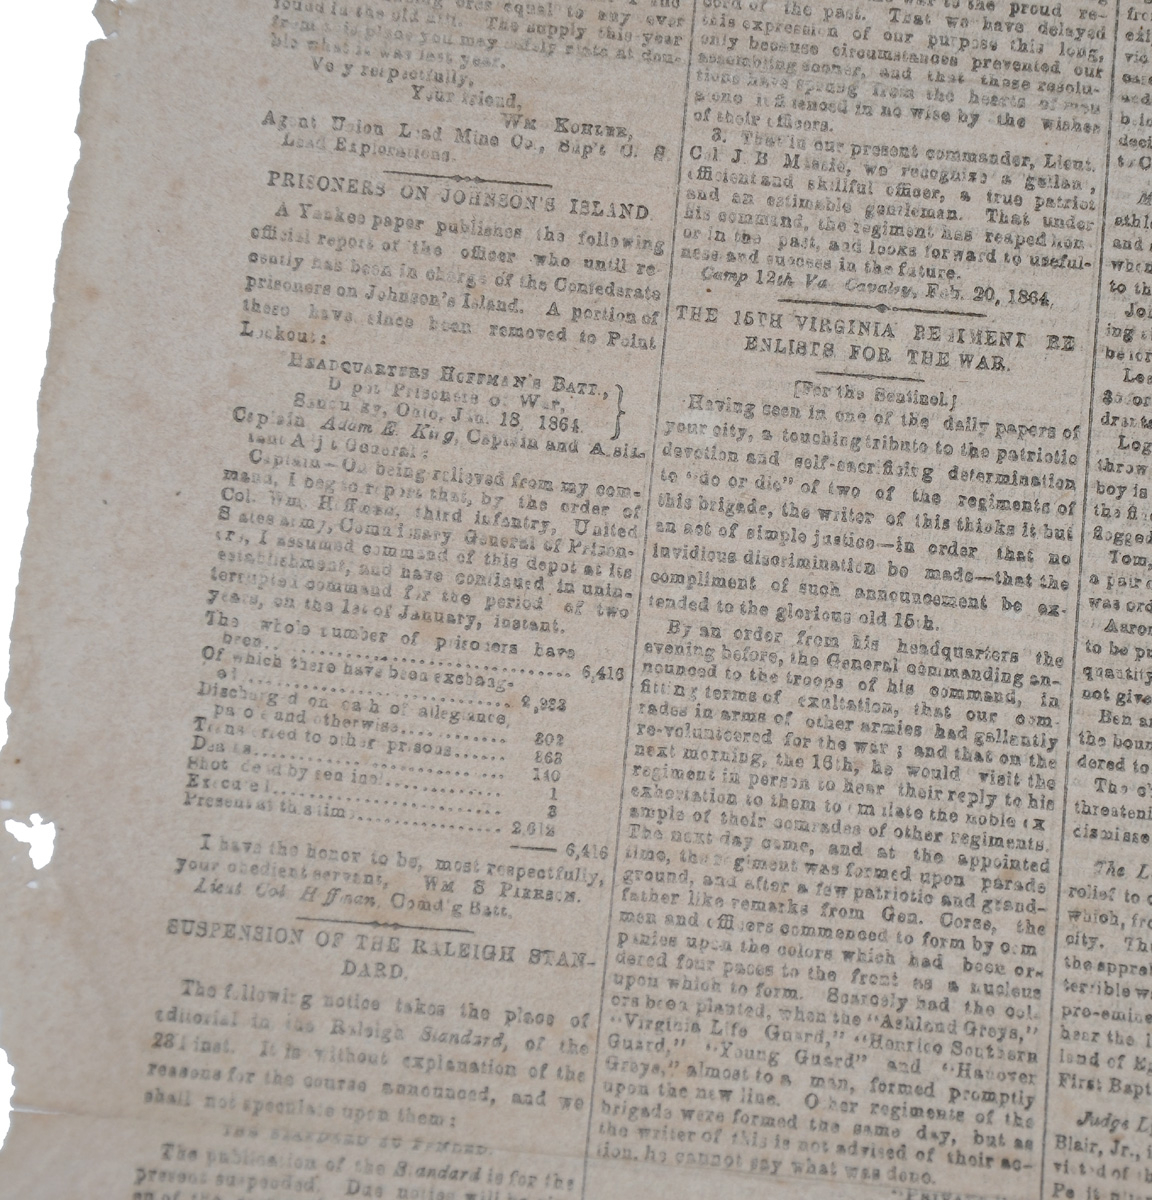 found in the old
The supply this year
you may safely
at dou-
ble what it was last year.
Very respectfully,
Your friend,
WM KOHLER,
Agent Union Lead Mine Co., Sup't C. S.
Lead Explorations.
PRISONERS ON JOHNSON'S ISLAND.
A Yankee paper publishes the following
official report of the officer who until re
cently has been in charge of the Confederate
prisoners on Johnson's Island. A portion of
these have since been removed to Point
Lookout:
HEADQUARTERS HOFFMAN'S BATT.,
Depot Prisoners of War,
Sandusky, Ohio, Jan. 18, 1864.
Captain Adam E. King, Captain and Assis-
tant Adjt General:
Captain—On being relieved from my com-
mand, I beg to report that, by the order of
Col. Wm. Hoffman, third infantry, United
States army, Commissary General of Prison-
ers, I assumed command of this depot at its
establishment, and have continued in unin-
terrupted command for the period of two
years, on the 1st of January, instant.
The whole number of prisoners have
been 6,416
Of which there have been exchang-
ed
Discharged on oath of allegiance,
parole and otherwise
Transferred to other prisons
Deaths 140
Shot dead by sentinel 1
Executed 3
Present at this time 2,612
6,416
I have the honor to be, most respectfully,
your obedient servant, WM S PIERSON.
Lieut Col Hoffman, Comd'g Batt.
SUSPENSION OF THE RALEIGH STAN-
DARD.
The following notice takes the place of
editorial in the Raleigh Standard, of the
inst. It is without explanation of the
reasons for the course announced, and we
shall not speculate upon them:
THE STANDARD SUSPENDED.
The publication of the Standard is for the
present suspended. Due notice will be
cord of the past. That we have delayed
this expression of our purpose this long,
only because circumstances prevented our
assembling sooner, and that these resolu-
tions have sprung from the hearts of men
alone influenced in no wise by the wishes
of their officers.
3. That in our present commander, Lieut.
Col J. B Massie, we recognize a gallant,
efficient and skillful officer, a true patriot
and an estimable gentleman. That under
his command, the regiment has reaped hon-
or in the past, and looks forward to useful-
ness and success in the future.
Camp 12th Va Cavalry, Feb. 20, 1864.
THE 15TH VIRGINIA REGIMENT RE
ENLISTS FOR THE WAR.
[For the Sentinel.]
Having seen in one of the daily papers of
your city, a touching tribute to the patriotic
devotion and self-sacrificing determination
to "do or die" of two of the regiments of
this brigade, the writer of this thinks it but
an act of simple justice—in order that no
invidious discrimination be made—that the
compliment of such announcement be ex-
tended to the glorious old 15th.
By an order from his headquarters the
evening before, the General commanding an-
nounced to the troops of his command, in
fitting terms of exultation, that our com-
rades in arms of other armies had gallantly
re-volunteered for the war; and that on the
next morning, the 16th, he would visit the
regiment in person to hear their reply to his
exhortation to them to emulate the noble ex
ample of their comrades of other regiments.
The next day came, and at the appointed
time, the regiment was formed upon parade
ground, and after a few patriotic and grand-
father like remarks from Gen. Corse, the
men and officers commenced to form by com
panies upon the colors which had been or-
dered four paces to the front as a nucleus
upon which to form. Scarcely had the col-
ors been planted, when the "Ashland Greys,"
"Virginia Life Guard," "Henrico Southern
Guard," "Young Guard" and "Hanover
Greys," almost to a man, formed promptly
upon the new line. Other regiments of the
brigade were formed the same day, but as
the writer of this is not advised of their ac-
tion, he cannot say what was done.
and
when
to th
ing
before
drants
Log
throw
boy is
flogged
Tom,
a pair
was ord
Aaron
to be pu
quantity
not give
Ben
the boun
dered to
threateni
dismisse
The L
relief to
which, fro
city. The
the appre
terrible w
pro-emine
hear the
land of E
First Bapt
Judge
Blair, Jr.,
visited th